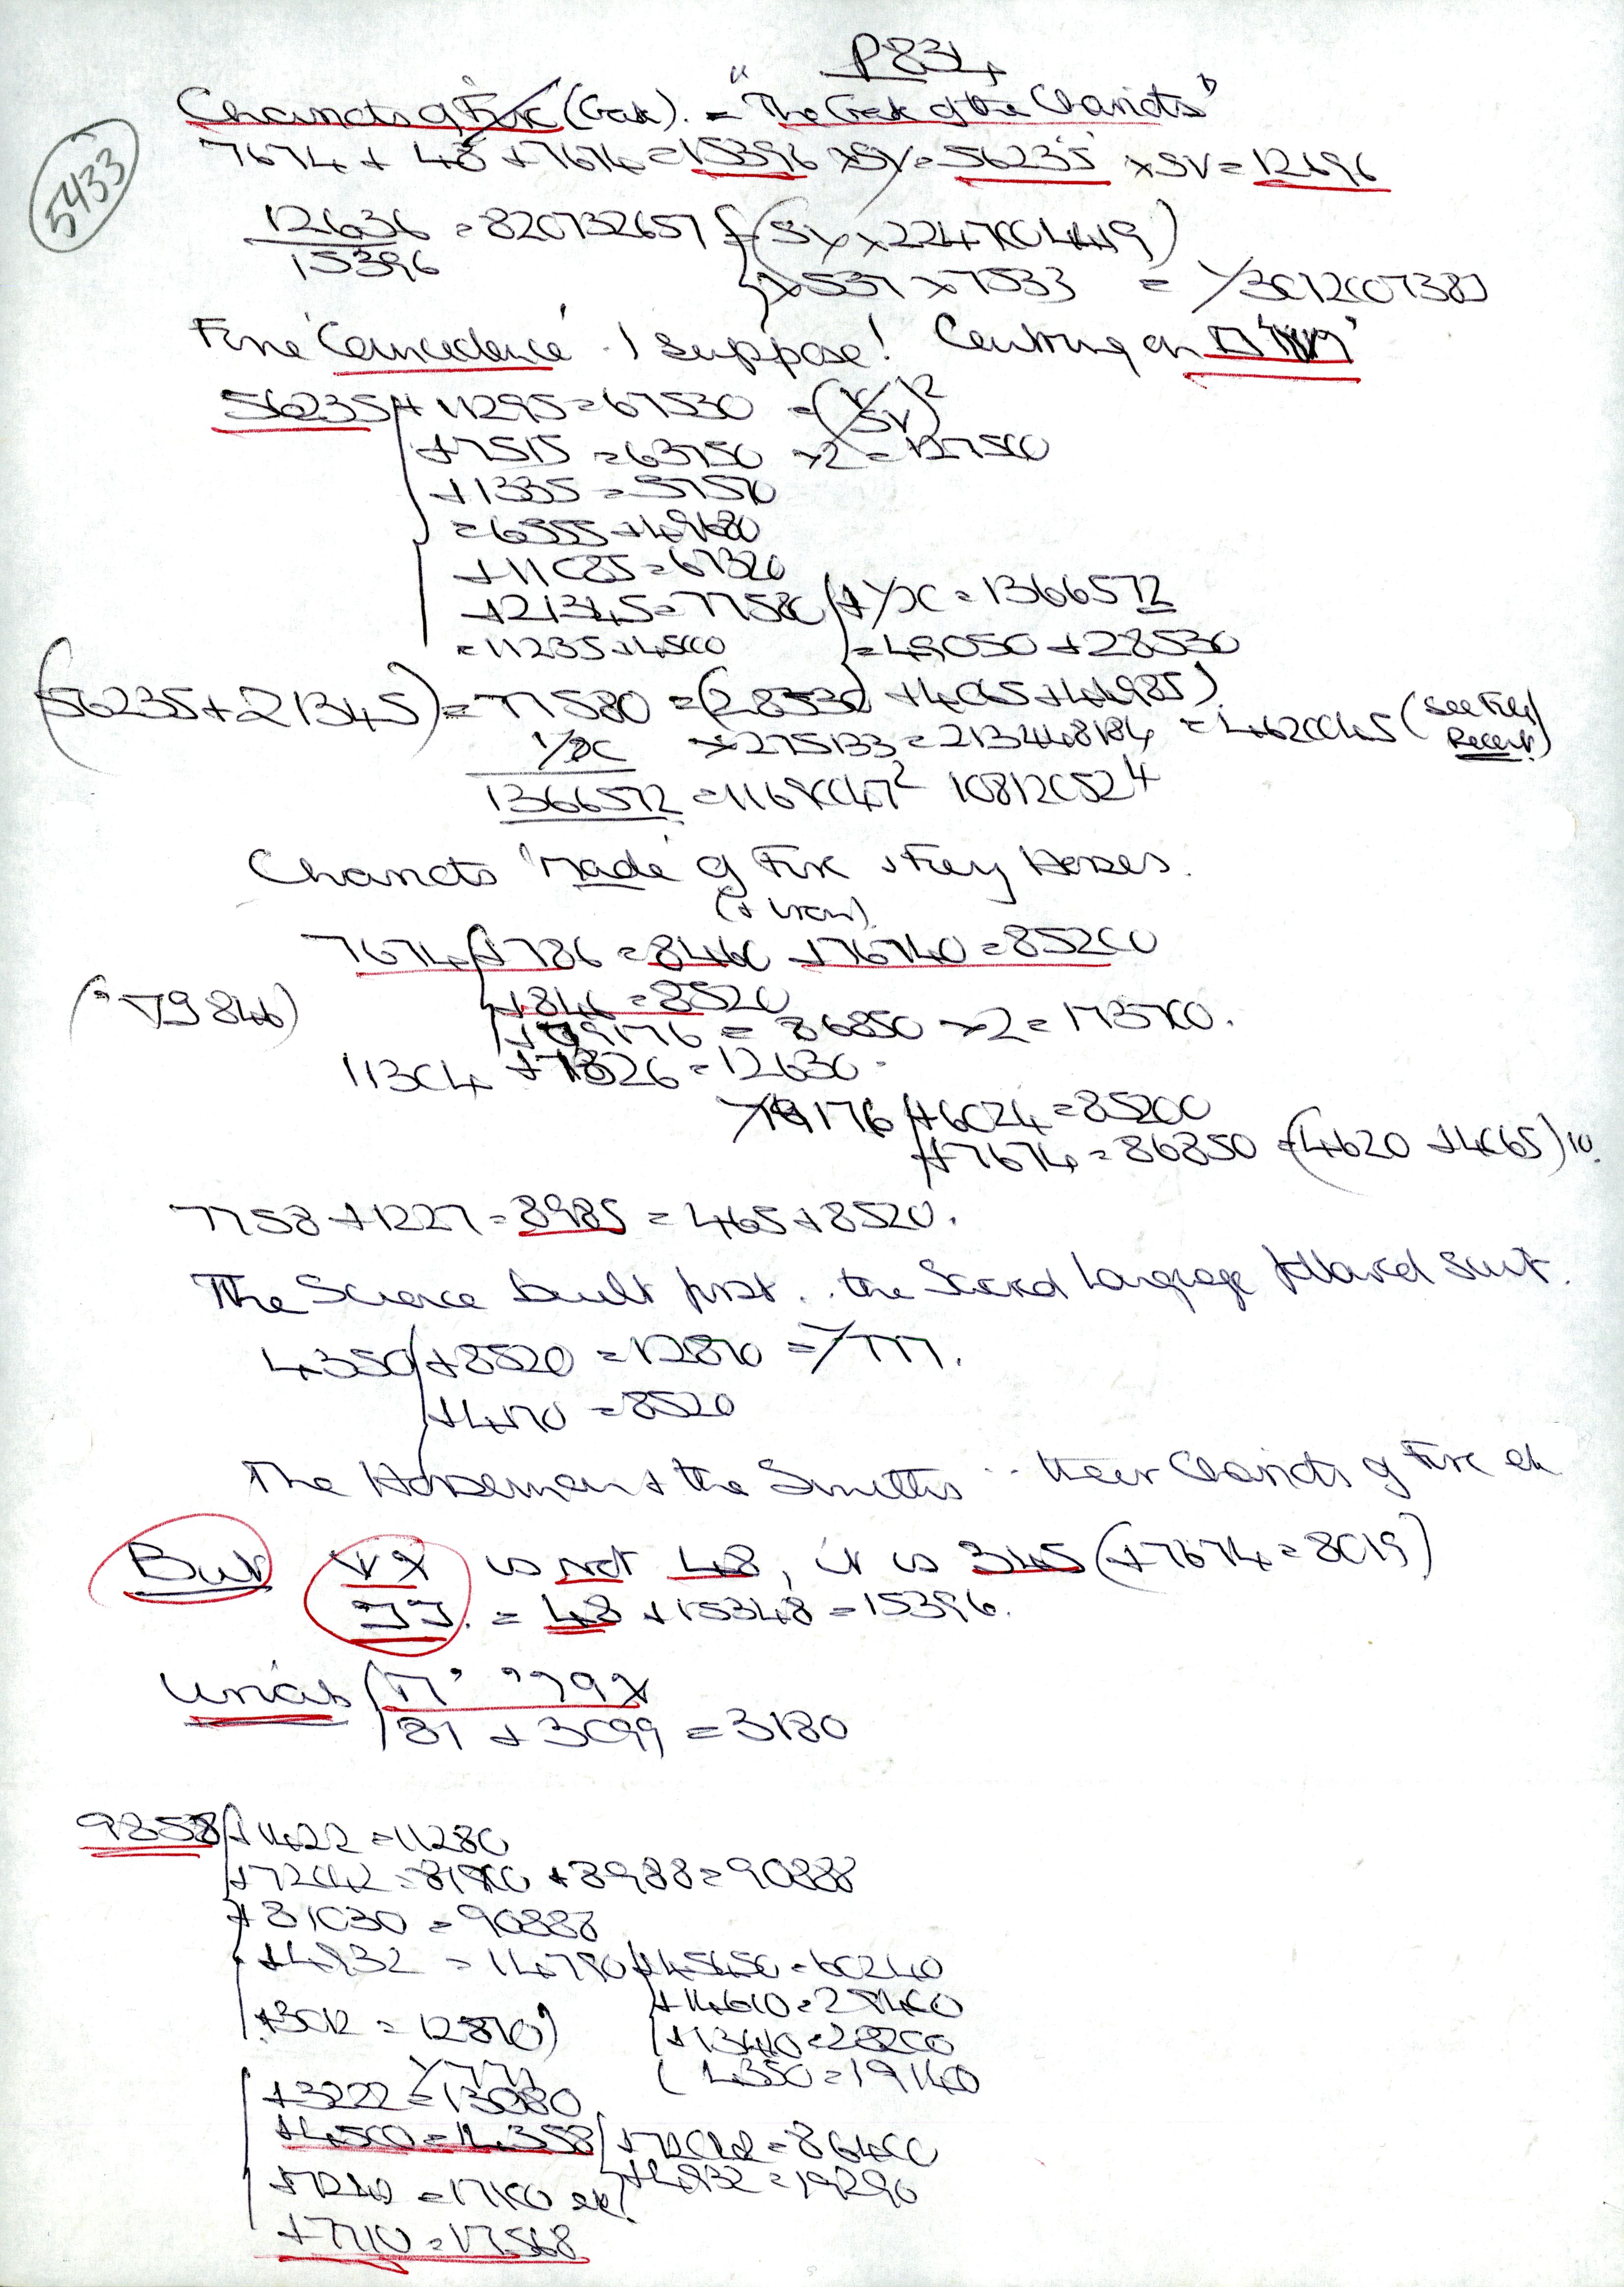 P834
Chariots of Fire (Greek). = "The Greek of the Chariots"
5433
7674 + 48 + 7674 = 15396 × SV = 56235 × SV = 12696
12636 = 820732657
15396
× 537 × 7533
Fine 'Coincidence' I suppose! Centring on
56235 + 11295 = 67530
+ 7515 = 63750 × 2 = 127500
+ 1335 = 57570
= 6555 + 49680
+ 11085 = 67320
+ 21345 = 77580 + = 1366572
= 11235 + 45000 = 49050 + 28530
(56235 + 21345) = 77580 = (28530 + 4065 + 44985)
× 275133 = 213448184 = 4620045 (see File) Recent
1366572 = 11690047² 10812052⁴
Chariots 'Made' of Fire & Fiery Horses.
(+ iron)
7674 + 786 = 8460 + 76740 = 85200
+ 846 = 8520
+ 79176 = 86850 × 2 = 173700.
11304 + 1326 = 12630.
79176 + 6024 = 85200
+ 7674 = 86850 = (4620 + 4065) 10.
7758 + 1227 = 8985 = 465 + 8520.
The Science built first .. the Sacred Language followed suit.
4350 + 8520 = 12870 =
+ 4170 = 8520
The Horsemen & the Smiths .. their Chariots of Fire etc
But is not 48, it is 345 (+ 7674 = 8019)
= 48 + 15348 = 15396.
Uriah
81 + 3099 = 3180
9858 + 1422 = 11280
+ 72042 = 81900 + 8988 = 90888
+ 81030 = 90888
+ 4932 = 14790 + 45450 = 60240
+ 14610 = 29400
+ 3012 = 12870
+ 13410 = 28200
4350 = 19140
+ 3222 = 13080
+ 4500 = 14358 + 72042 = 86400
+ 4932 = 19290
+ 7242 = 17100 etc
+ 7710 = 17568